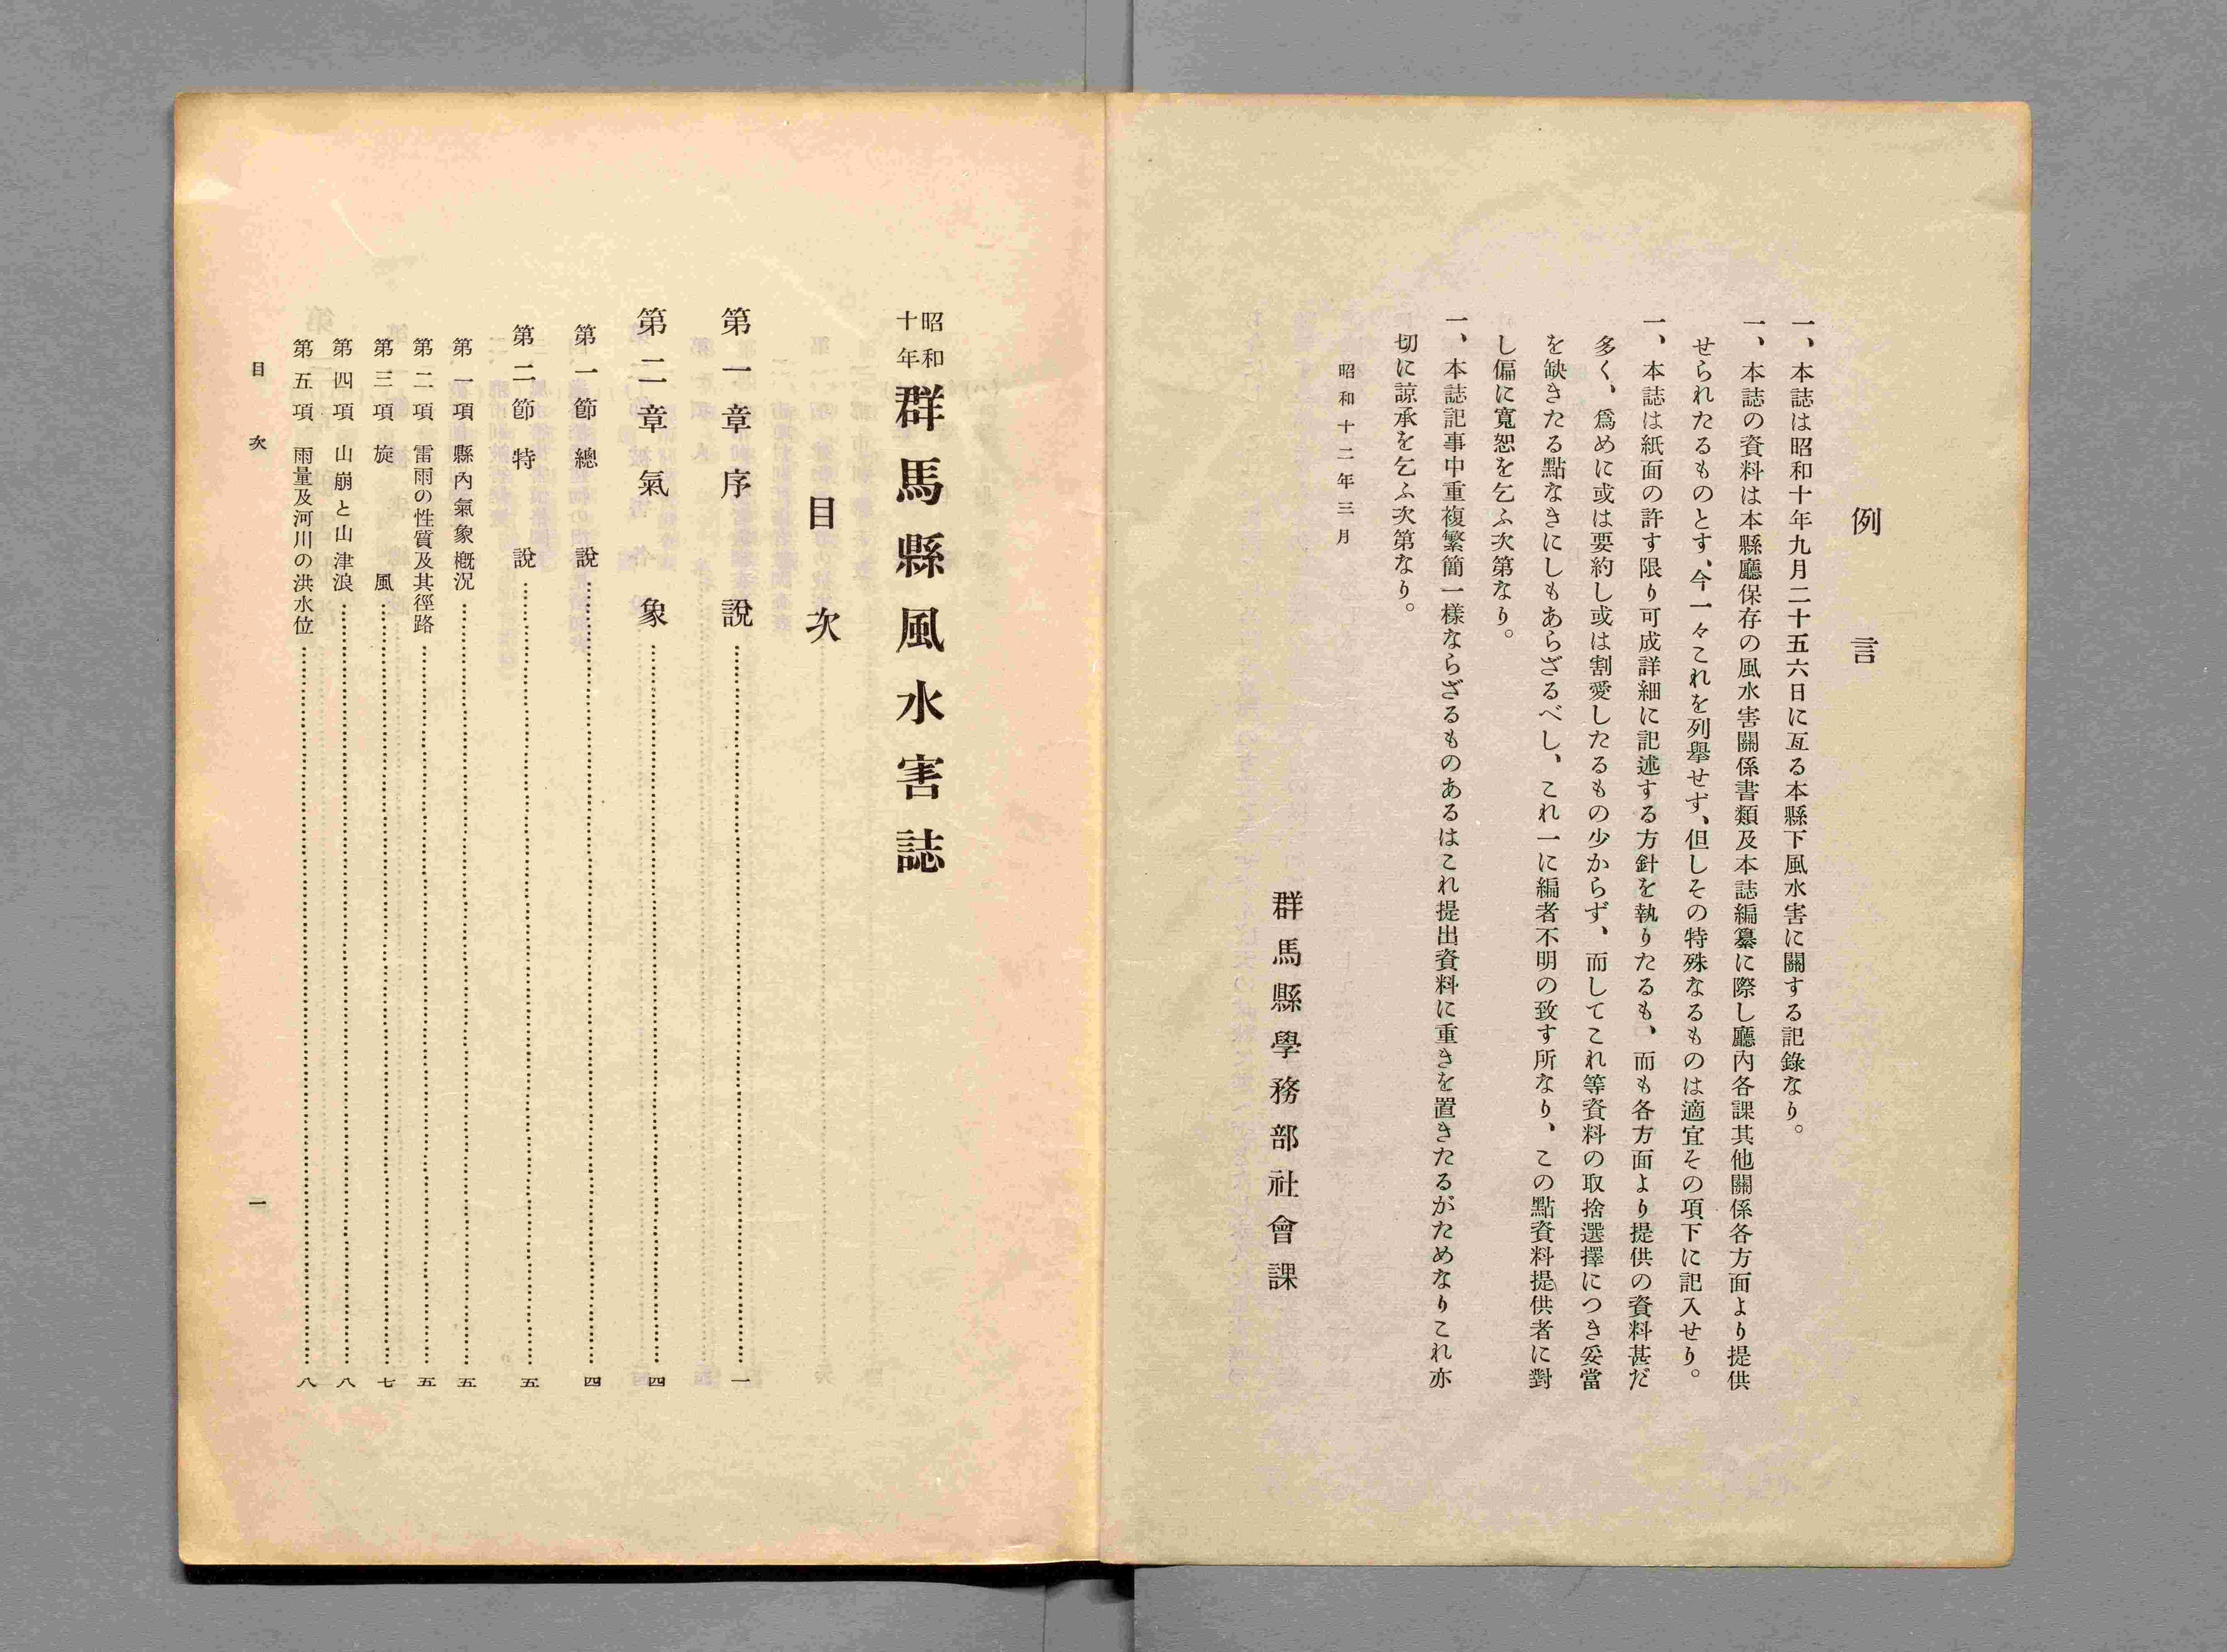 例言
一、本誌は昭和十年九月二十五六日に亙る本縣下風水害に關する記錄なり。
一、本誌の資料は本縣廳保存の風水害關係書類及本誌編纂に際し廳內各課其他關係各方面より提供
せられたるものとす、今一々これを列擧せず、但しその特殊なるものは適宜その項下に記入せり。
一、本誌は紙面の許す限り可成詳細に記述する方針を執りたるも、而も各方面より提供の資料甚だ
多く、爲めに或は要約し或は割愛したるもの少からず、而してこれ等資料の取捨選擇につき妥當
を缺きたる點なきにしもあらざるべし、これ一に編者不明の致す所なり、この點資料提供者に對
し偏に寬恕を乞ふ次第なり。
一、本誌記事中重複繁簡一樣ならざるものあるはこれ提出資料に重きを置きたるがためなりこれ亦
切に諒承を乞ふ次第なり。
昭和十二年三月
群馬縣學務部社會課
昭和十年群馬縣風水害誌
目次
第一章序說……一
第二章氣象……四
第一節總說……四
第二節特說……五
第一項 縣內氣象槪況……五
第二項 雷雨の性質及其徑路……五
第三項 旋風……七
第四項 山崩と山津浪……八
第五項 雨量及河川の洪水位……八
目次 一